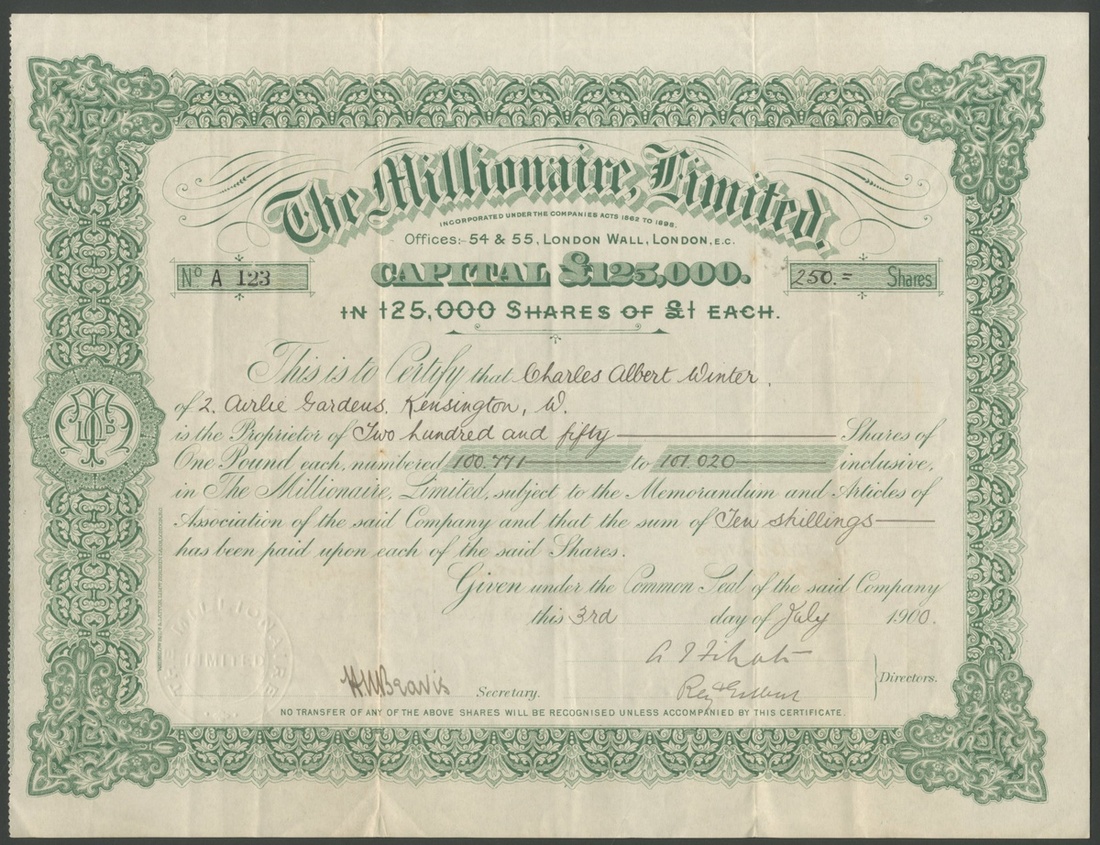 The Millionaire, Limited.
INCORPORATED UNDER THE COMPANIES ACTS 1862 TO 1898.
Offices:- 54 & 55, LONDON WALL, LONDON, E.C.
CAPITAL £125,000.
No A 123
250.= Shares
IN 125,000 SHARES OF £1 EACH.
This is to Certify that Charles Albert Winter,
of 2. Airlie Gardens, Kensington, W.
is the Proprietor of Two hundred and fifty Shares of
One Pound each, numbered 100.771 to 101.020 inclusive,
in The Millionaire, Limited, subject to the Memorandum and Articles of
Association of the said Company and that the sum of Ten shillings
has been paid upon each of the said Shares.
Given under the Common Seal of the said Company
this 3rd day of July 1900.
THE MILLIONAIRE
LIMITED
H.W. Bravis Secretary.
Directors.
NO TRANSFER OF ANY OF THE ABOVE SHARES WILL BE RECOGNISED UNLESS ACCOMPANIED BY THIS CERTIFICATE.